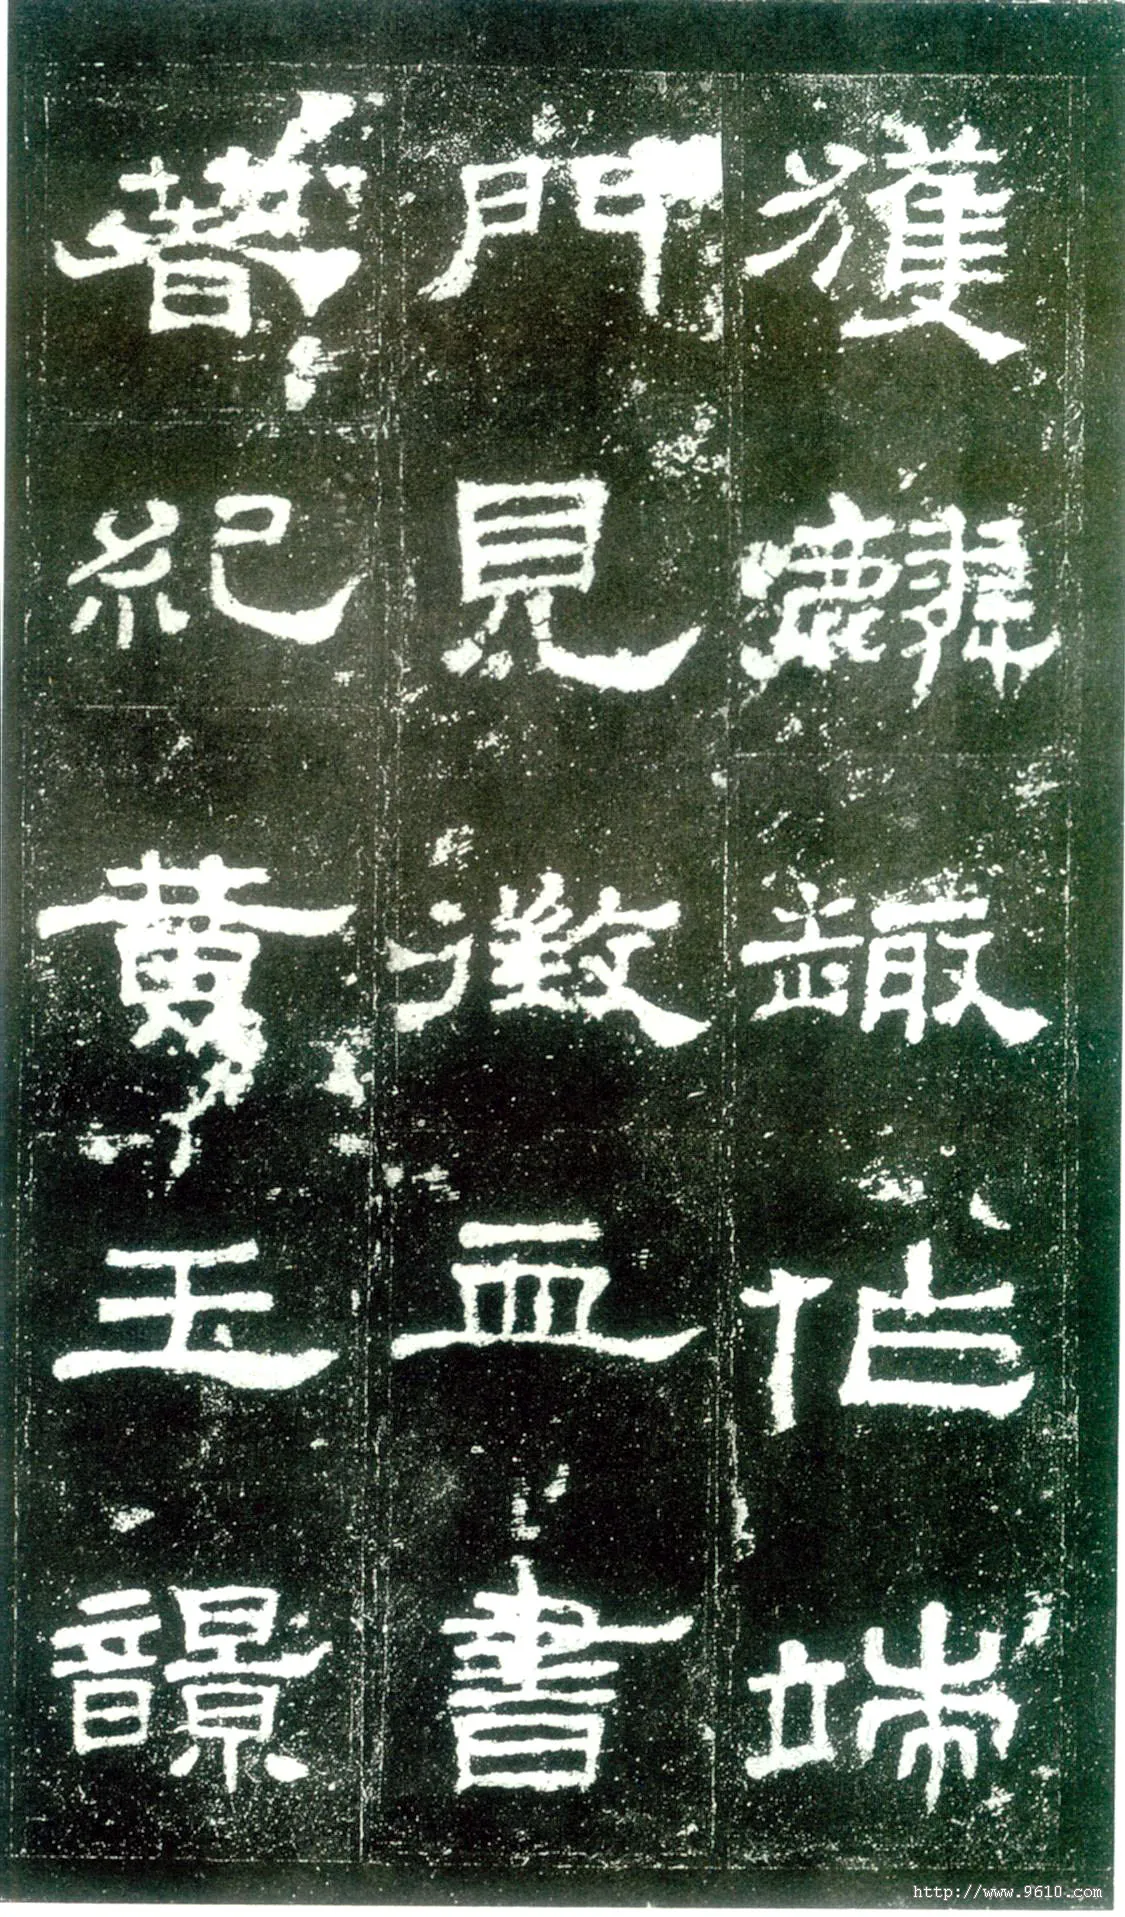 獲麟趣作端
門見徵血書
著紀黃玉
http://www.9610.com